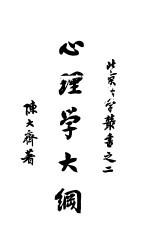 北京大學叢書之二
心理学大綱
陳大齊著